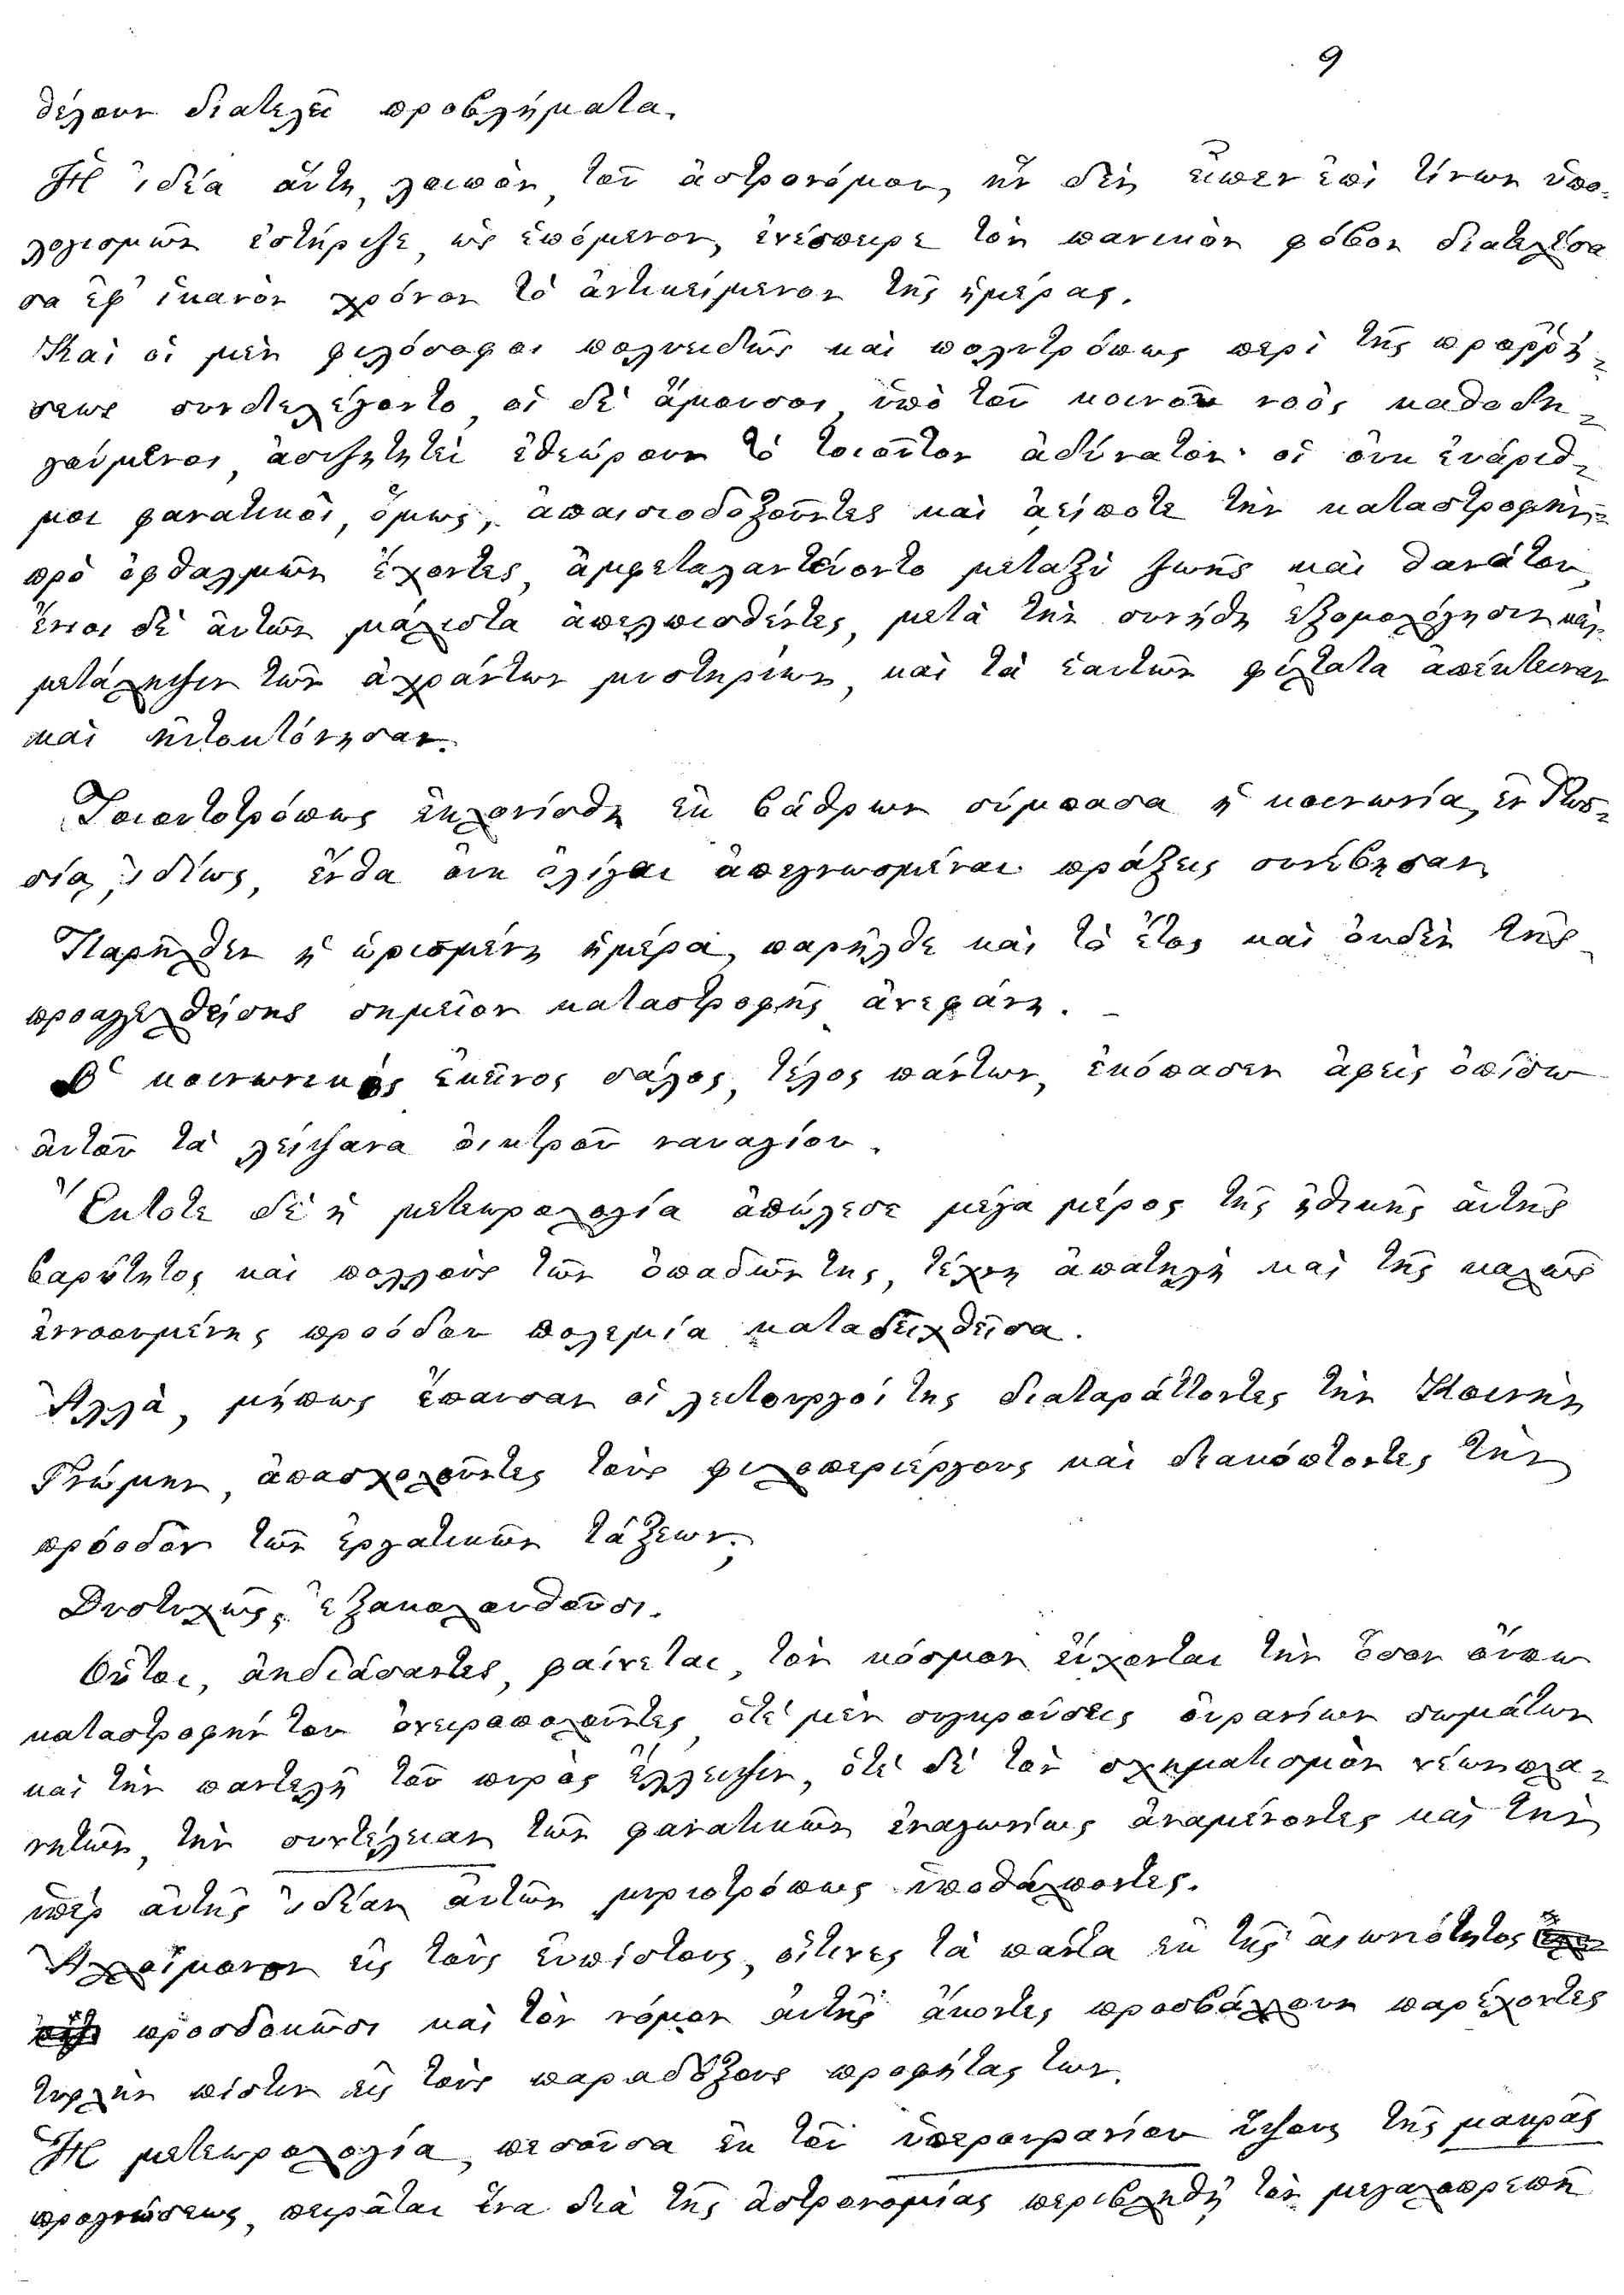 9
θέλουν διατελεῖ προβλήματα.
Ἡ ἰδέα αὕτη, λοιπὸν, τοῦ ἀστρονόμου, ἣν δὲν εἶπεν ἐπὶ τίνων ὑπο-
λογισμῶν ἐστήριξε, ὡς ἑπόμενον, ἐνέσπειρε τὸν πανικὸν φόβον διατελέσα
σα ἐφ' ἱκανὸν χρόνον τὸ ἀντικείμενον τῆς ἡμέρας.
Καὶ οἱ μὲν φιλόσοφοι πολυειδῶς καὶ πολυτρόπως περὶ τῆς προρρή-
σεως συνδιελέγοντο, οἱ δὲ ἄμουσοι, ὑπὸ τοῦ κοινοῦ νοὸς καθοδη-
γούμενοι, ἀσυζητητεὶ ἐθεώρουν τὸ τοιοῦτον ἀδύνατον· οἱ οὐκ ἐνάριθ-
μοι φανατικοὶ, ὅμως, ἀπαισιοδοξοῦντες καὶ ἀείποτε τὴν καταστροφὴν
πρὸ ὀφθαλμῶν ἔχοντες, ἀμφεταλαντεύοντο μεταξὺ ζωῆς καὶ θανάτου,
ἔνιοι δὲ αὐτῶν μάλιστα ἀπελπισθέντες, μετὰ τὴν συνήθη ἐξομολόγησιν καὶ
μετάληψιν τῶν ἀχράντων μυστηρίων, καὶ τὰ ἑαυτῶν φίλτατα ἀπέκτειναν
καὶ ηὐτοκτόνησαν.
Τοιουτοτρόπως ἐκλονίσθη ἐκ βάθρων σύμπασα ἡ κοινωνία, ἐν Ρωσ-
σίᾳ, ἰδίως, ἔνθα οὐκ ὀλίγαι ἀπεγνωσμέναι πράξεις συνέβησαν
Παρῆλθεν ἡ ὡρισμένη ἡμέρα, παρῆλθε καὶ τὸ ἔτος καὶ οὐδὲν τῆς
προαγγελθείσης σημεῖον καταστροφῆς ἀνεφάνη. –
Ὁ κοινωνικὸς ἐκεῖνος σάλος, τέλος πάντων, ἐκόπασεν ἀφεὶς ὀπίσω
αὐτοῦ τὰ λείψανα οἰκτροῦ ναυαγίου.
Ἔκτοτε δὲ ἡ μετεωρολογία ἀπώλεσε μέγα μέρος τῆς ἠθικῆς αὐτῆς
βαρύτητος καὶ πολλοὺς τῶν ὀπαδῶν της, τέχνη ἀπατηλὴ καὶ τῆς καλῶς
ἐννοουμένης προόδου πολεμία καταδειχθεῖσα.
Ἀλλὰ, μήπως ἔπαυσαν οἱ λειτουργοί της διαταράττοντες τὴν Κοινὴν
Γνώμην, ἀπασχολοῦντες τοὺς φιλοπεριέργους καὶ διακόπτοντες τὴν
πρόοδον τῶν ἐργατικῶν τάξεων;
Δυστυχῶς, ἐξακολουθοῦσι.
Οὗτοι, ἀηδιάσαντες, φαίνεται, τὸν κόσμον εὔχονται τὴν ὅσον οὔπω
καταστροφήν του ὀνειροπολοῦντες, ὁτὲ μὲν συγκρούσεις οὐρανίων σωμάτων
καὶ τὴν παντελῆ τοῦ πυρὸς ἔλλειψιν, ὁτὲ δὲ τὸν σχηματισμὸν νέων πλα-
νητῶν, τὴν συντέλειαν τῶν φανατικῶν ἐναγωνίως ἀναμένοντες καὶ τὴν
ὑπὲρ αὐτῆς ἰδέαν αὐτῶν μυριοτρόπως ὑποθάλποντες.
Ἀλλοίμονον εἰς τοὺς εὐπίστους, οἵτινες τὰ πάντα ἐκ τῆς αἰωνιότητος
προσδοκῶσι καὶ τὸν νόμον αὐτῆς ἄκοντες προσβάλλουν παρέχοντες
τυφλὴν πίστιν εἰς τοὺς παραδόξους προφήτας των.
Ἡ μετεωρολογία, πεσοῦσα ἐκ τοῦ ὑπερουρανίου ὕψους τῆς μακρᾶς
προγνώσεως, πειρᾶται ἵνα διὰ τῆς ἀστρονομίας περιβληθῇ τὸν μεγαλοπρεπῆ